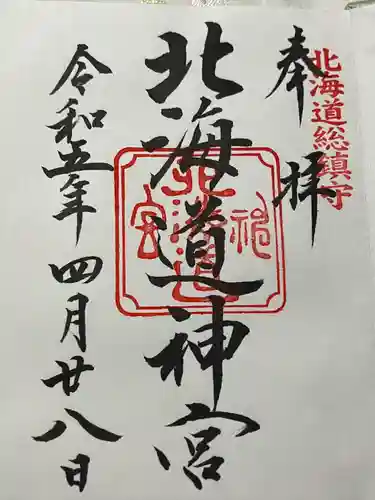 北海道総鎮守
奉拝
北海道神宮
北海道神宮
令和五年四月廿八日